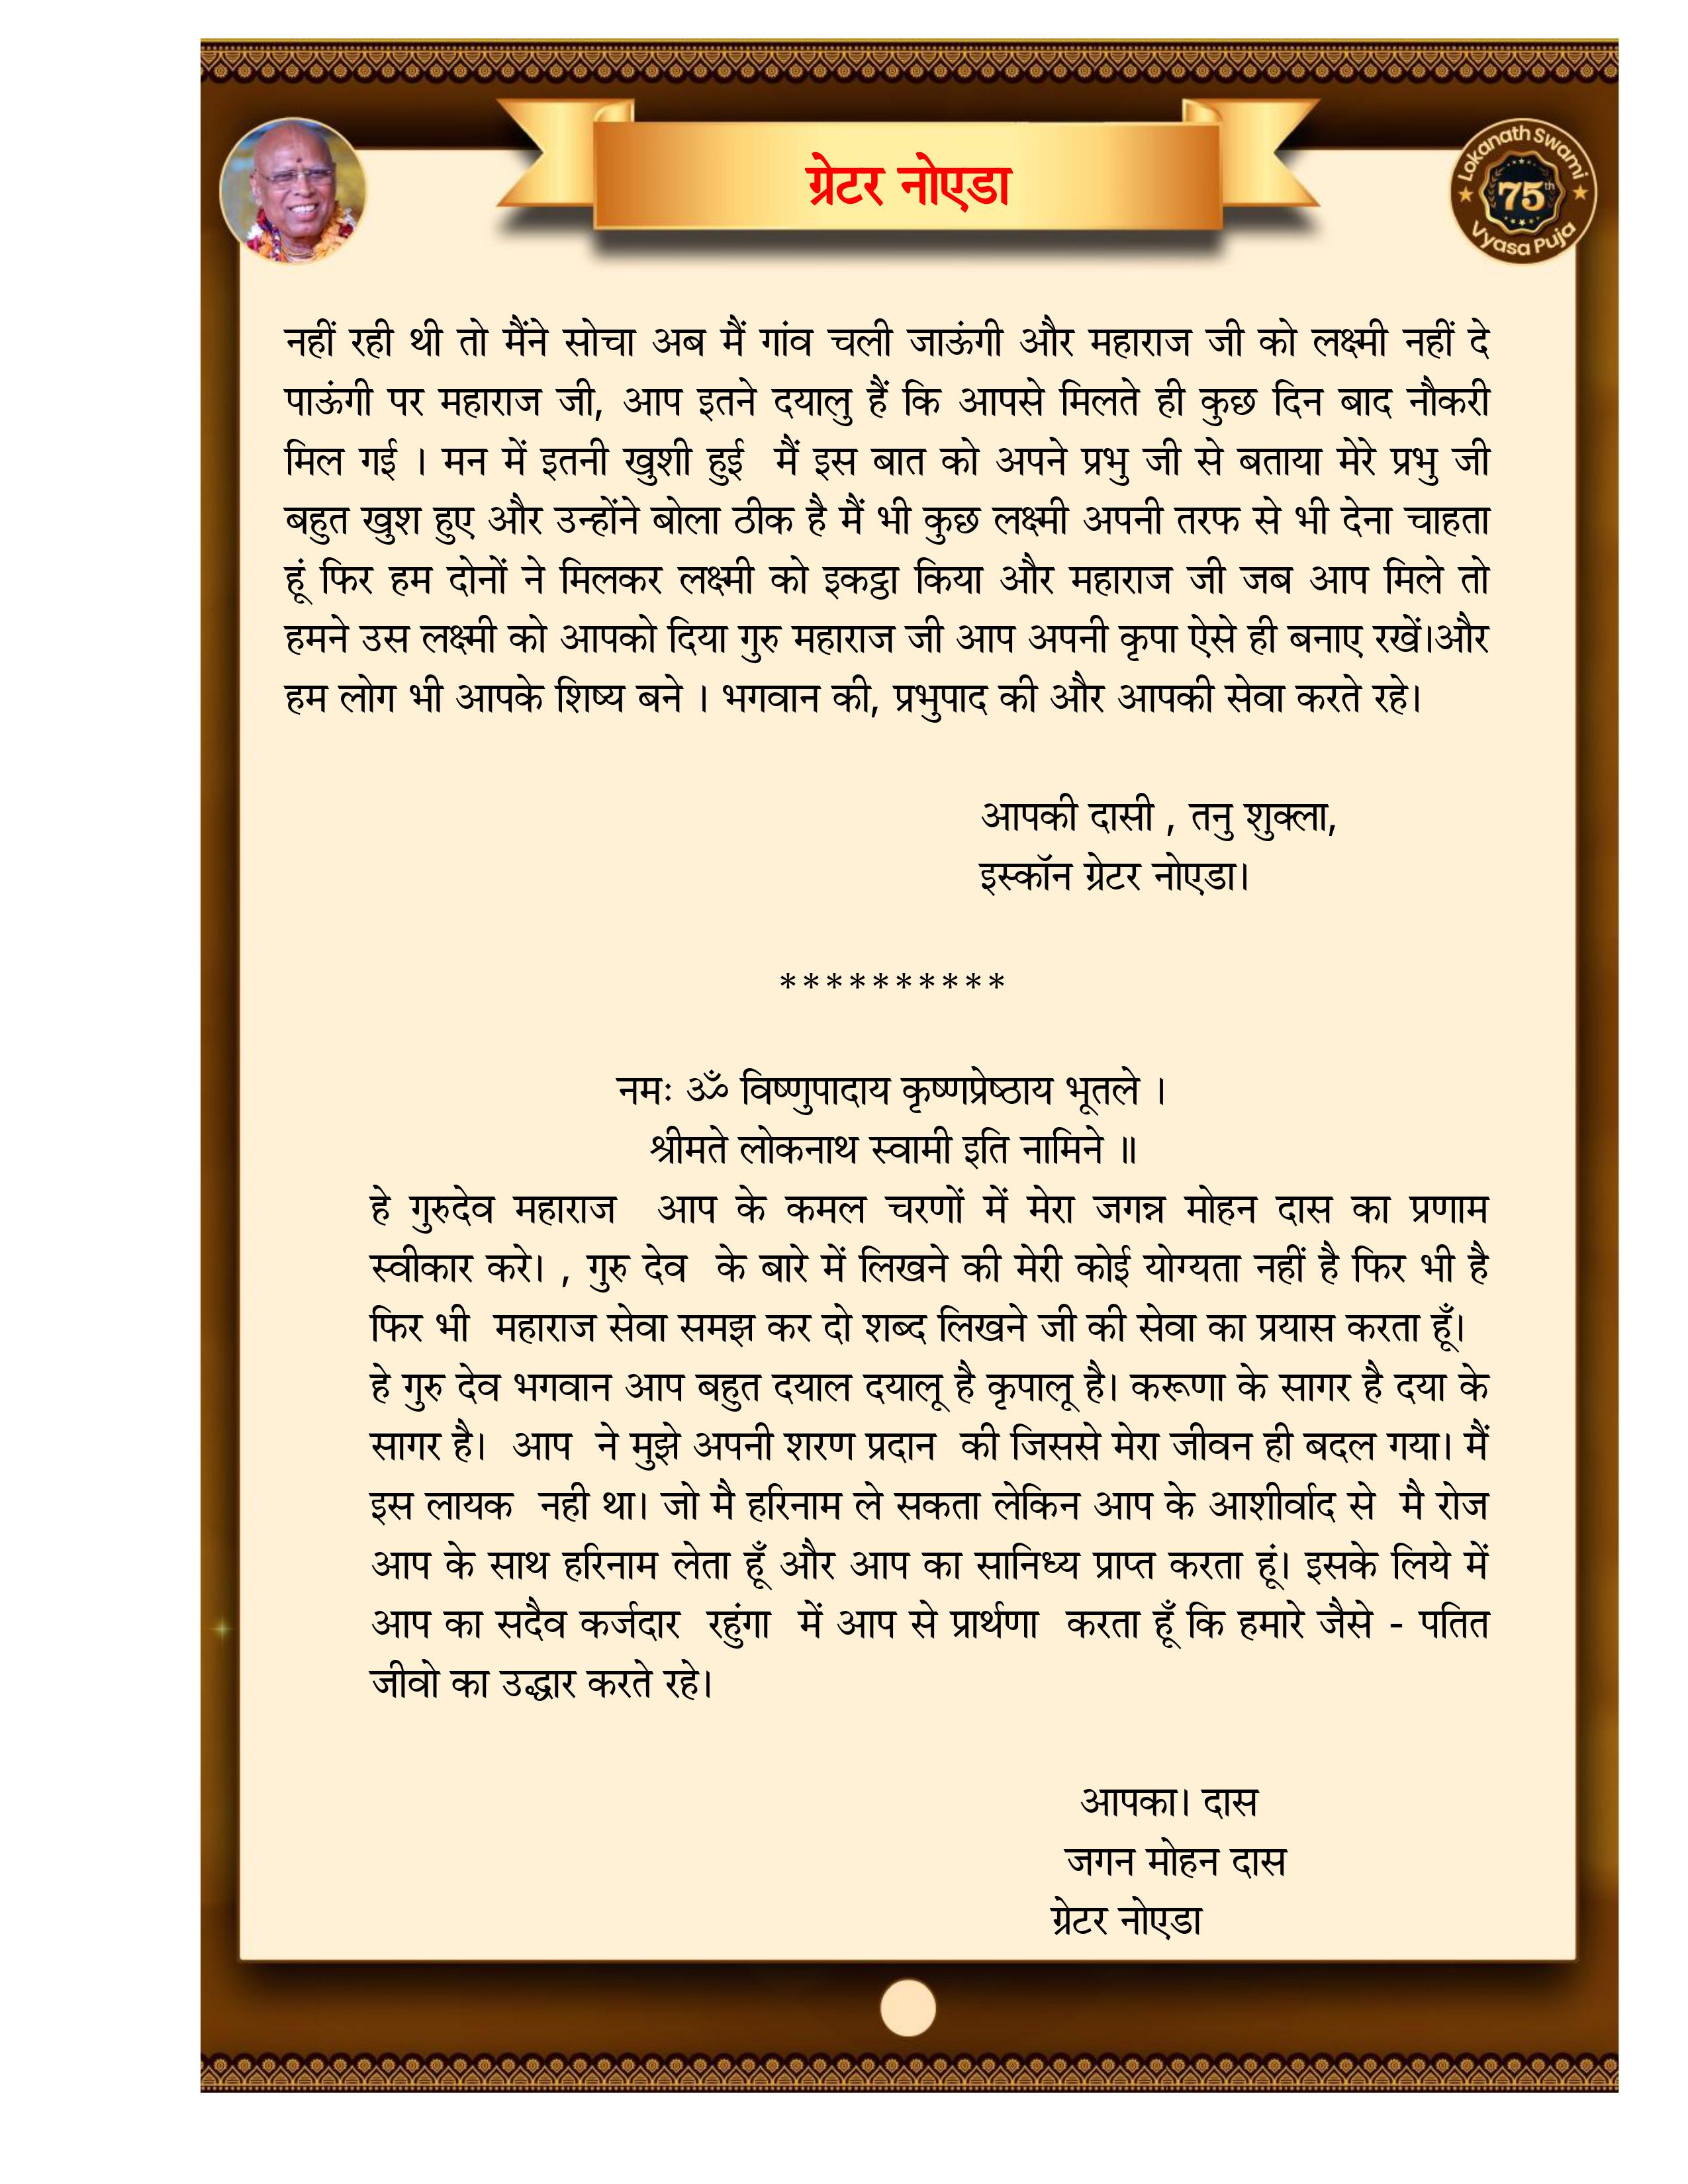 ग्रेटर नोएडा
Lokanath Swami
75th
Vyasa Puja
नहीं रही थी तो मैंने सोचा अब मैं गांव चली जाऊंगी और महाराज जी को लक्ष्मी नहीं दे
पाऊंगी पर महाराज जी, आप इतने दयालु हैं कि आपसे मिलते ही कुछ दिन बाद नौकरी
मिल गई । मन में इतनी खुशी हुई  मैं इस बात को अपने प्रभु जी से बताया मेरे प्रभु जी
बहुत खुश हुए और उन्होंने बोला ठीक है मैं भी कुछ लक्ष्मी अपनी तरफ से भी देना चाहता
हूं फिर हम दोनों ने मिलकर लक्ष्मी को इकट्ठा किया और महाराज जी जब आप मिले तो
हमने उस लक्ष्मी को आपको दिया गुरु महाराज जी आप अपनी कृपा ऐसे ही बनाए रखें।और
हम लोग भी आपके शिष्य बने । भगवान की, प्रभुपाद की और आपकी सेवा करते रहे।
आपकी दासी , तनु शुक्ला,
इस्कॉन ग्रेटर नोएडा।
**********
नमः ॐ विष्णुपादाय कृष्णप्रेष्ठाय भूतले ।
श्रीमते लोकनाथ स्वामी इति नामिने ॥
हे गुरुदेव महाराज  आप के कमल चरणों में मेरा जगन्न मोहन दास का प्रणाम
स्वीकार करे। , गुरु देव  के बारे में लिखने की मेरी कोई योग्यता नहीं है फिर भी है
फिर भी  महाराज सेवा समझ कर दो शब्द लिखने जी की सेवा का प्रयास करता हूँ।
हे गुरु देव भगवान आप बहुत दयाल दयालू है कृपालू है। करूणा के सागर है दया के
सागर है।  आप  ने मुझे अपनी शरण प्रदान  की जिससे मेरा जीवन ही बदल गया। मैं
इस लायक  नही था। जो मै हरिनाम ले सकता लेकिन आप के आशीर्वाद से  मै रोज
आप के साथ हरिनाम लेता हूँ और आप का सानिध्य प्राप्त करता हूं। इसके लिये में
आप का सदैव कर्जदार  रहुंगा  में आप से प्रार्थणा  करता हूँ कि हमारे जैसे - पतित
जीवो का उद्धार करते रहे।
आपका। दास
जगन मोहन दास
ग्रेटर नोएडा